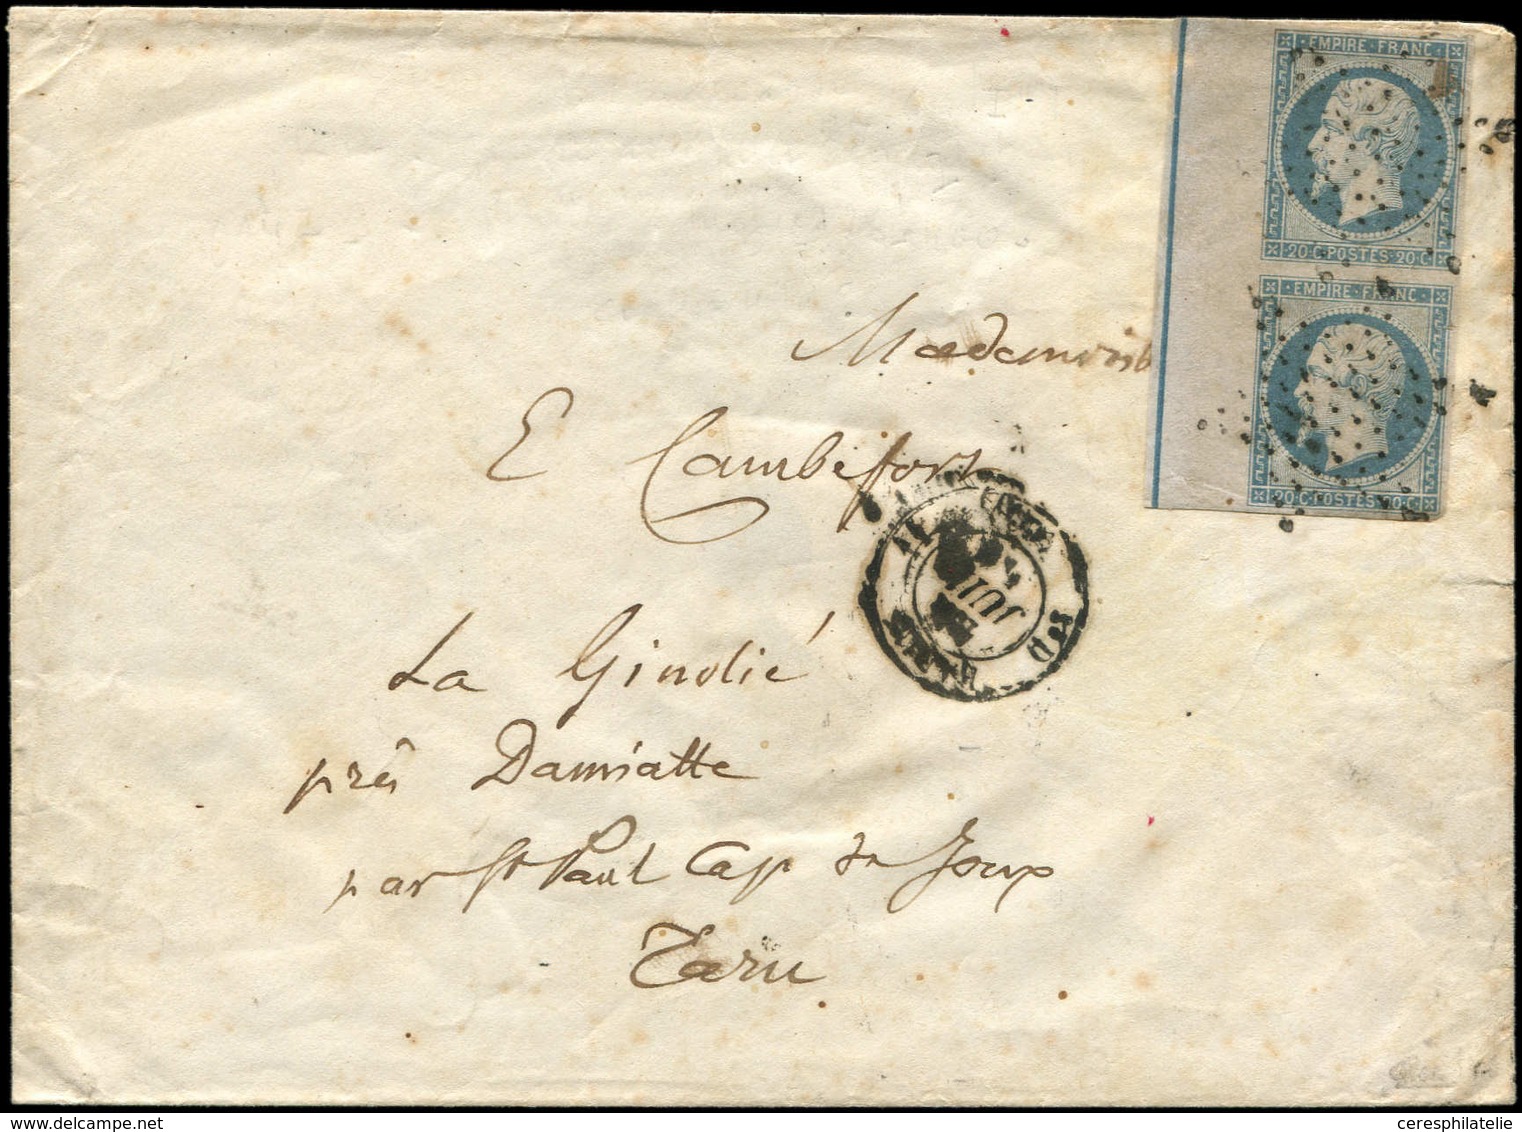 EMPIRE·FRANC
20·C·POSTES·20·C
EMPIRE·FRANC
20·C·POSTES·20·C
Mademoisel
E Cambefort
JUIL
La Gindié
près Damiatte
par St Paul Cap de Joux
Tarn
ceresphilatelie